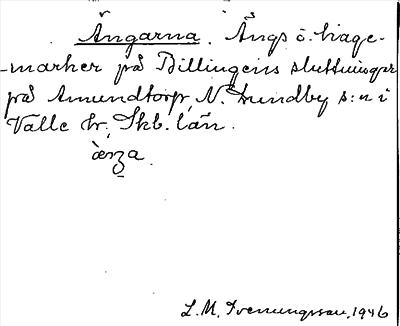 Ängarna. Ängs o. hage-
-marker på Billingens sluttningar
på Amundtorp, N. Lundby s:n i
Valle hr, Skb. län.
L. M. Svenungsson, 1946